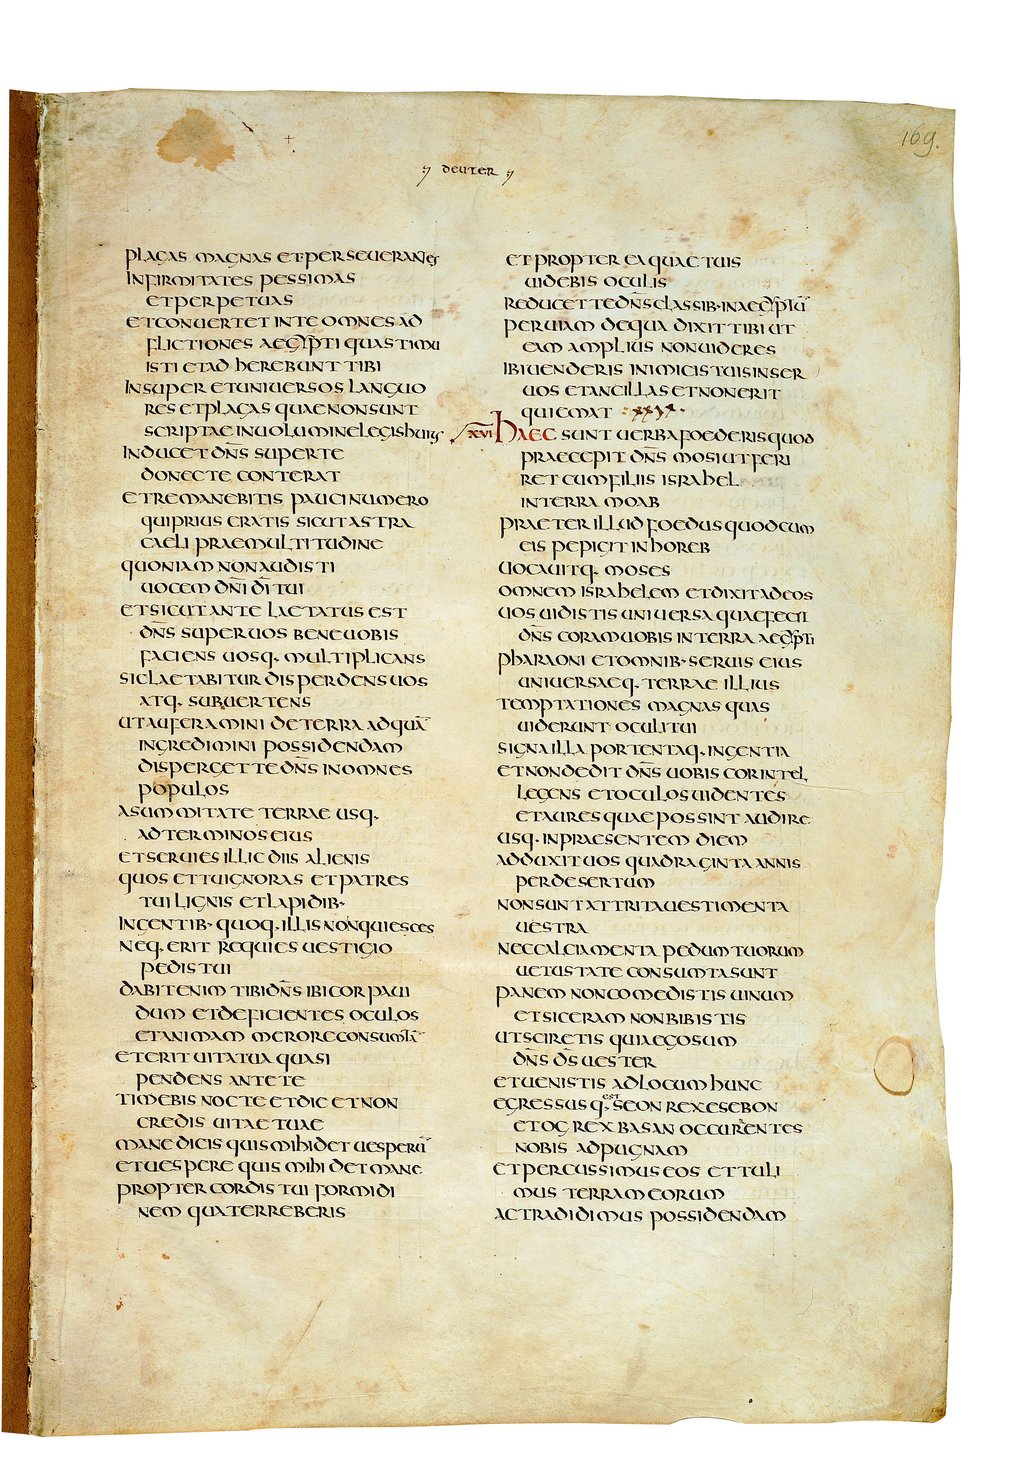 169.
DEUTER
PLAGAS MAGNAS ET PERSEUERANTES
INFIRMITATES PESSIMAS
ET PERPETUAS
ET CONUERTET IN TE OMNES AD
FLICTIONES AEGYPTI QUAS TIMU
ISTI ET ADHEREBUNT TIBI
INSUPER ET UNIUERSOS LANGUO
RES ET PLAGAS QUAE NON SUNT
SCRIPTAE IN UOLUMINE LEGIS HUIUS
INDUCET DN̅S SUPER TE
DONEC TE CONTERAT
ET REMANEBITIS PAUCI NUMERO
QUI PRIUS ERATIS SICUT ASTRA
CAELI PRAE MULTITUDINE
QUONIAM NON AUDISTI
UOCEM DN̅I DI̅ TUI
ET SICUT ANTE LAETATUS EST
DN̅S SUPER UOS BENE UOBIS
FACIENS UOSQ· MULTIPLICANS
SIC LAETABITUR DISPERDENS UOS
ATQ· SUBUERTENS
UT AUFERAMINI DE TERRA AD QUA̅
INGREDIMINI POSSIDENDAM
DISPERGET TE DN̅S IN OMNES
POPULOS
A SUMMITATE TERRAE USQ·
AD TERMINOS EIUS
ET SERUIES ILLIC DIIS ALIENIS
QUOS ET TU IGNORAS ET PATRES
TUI LIGNIS ET LAPIDIB·
IN GENTIB· QUOQ· ILLIS NON QUIESCES
NEQ· ERIT REQUIES UESTIGIO
PEDIS TUI
DABIT ENIM TIBI DN̅S IBI COR PAUI
DUM ET DEFICIENTES OCULOS
ET ANIMAM MERORE CONSUMTA̅
ET ERIT UITA TUA QUASI
PENDENS ANTE TE
TIMEBIS NOCTE ET DIE ET NON
CREDIS UITAE TUAE
MANE DICIS QUIS MIHI DET UESPERU̅
ET UESPERE QUIS MIHI DET MANE
PROPTER CORDIS TUI FORMIDI
NEM QUA TERREBERIS
ET PROPTER EA QUAE TUIS
UIDEBIS OCULIS
REDUCET TE DN̅S CLASSIB· IN AEGYPTU̅
PER UIAM DE QUA DIXIT TIBI UT
EAM AMPLIUS NON UIDERES
IBI UENDERIS INIMICIS TUIS IN SER
UOS ET ANCILLAS ET NON ERIT
QUI EMAT
XVI HAEC SUNT UERBA FOEDERIS QUOD
PRAECEPIT DN̅S MOSI UT FERI
RET CUM FILIIS ISRAHEL
IN TERRA MOAB
PRAETER ILLUD FOEDUS QUOD CUM
EIS PEPIGIT IN HOREB
UOCAUITQ· MOSES
OMNEM ISRAHELEM ET DIXIT AD EOS
UOS UIDISTIS UNIUERSA QUAE FECIT
DN̅S CORAM UOBIS IN TERRA AEGYPTI
PHARAONI ET OMNIB· SERUIS EIUS
UNIUERSAEQ· TERRAE ILLIUS
TEMPTATIONES MAGNAS QUAS
UIDERUNT OCULI TUI
SIGNA ILLA PORTENTAQ· INGENTIA
ET NON DEDIT DN̅S UOBIS COR INTEL
LEGENS ET OCULOS UIDENTES
ET AURES QUAE POSSINT AUDIRE
USQ· IN PRAESENTEM DIEM
ADDUXIT UOS QUADRAGINTA ANNIS
PER DESERTUM
NON SUNT ATTRITA UESTIMENTA
UESTRA
NEC CALCIAMENTA PEDUM TUORUM
UETUSTATE CONSUMTA SUNT
PANEM NON COMEDISTIS UINUM
ET SICERAM NON BIBISTIS
UT SCIRETIS QUIA EGO SUM
DN̅S DS̅ UESTER
ET UENISTIS AD LOCUM HUNC
EGRESSUSQ· EST SEON REX ESEBON
ET OG REX BASAN OCCURRENTES
NOBIS AD PUGNAM
ET PERCUSSIMUS EOS ET TULI
MUS TERRAM EORUM
AC TRADIDIMUS POSSIDENDAM